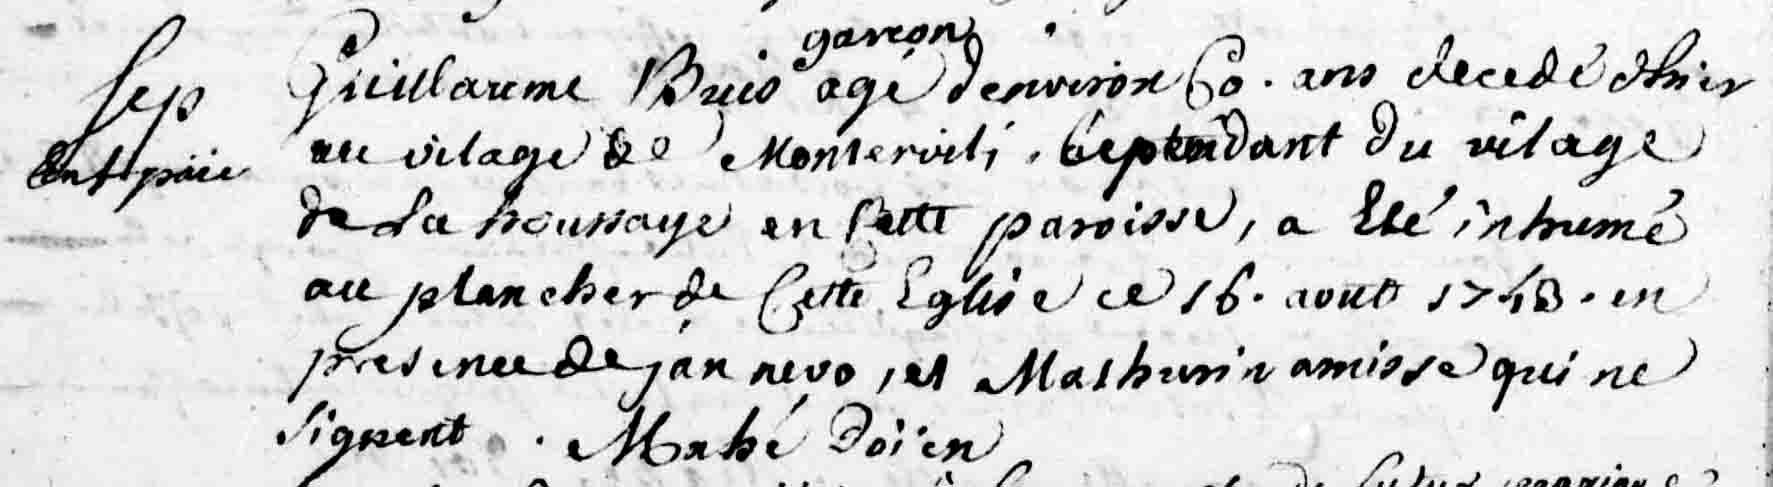 garcon
Sep Guillaume Buis agé denviron 60. ans decedé dhier
Ent paie au vilage de Montervili, dependant du vilage
de La houssaye en Cette paroisse, a Eté inhumé
au plancher de Cette Eglise ce 16. aout 1748. en
presence de jan nevo, et Mathurin amisse qui ne
signent. Mahé Doien